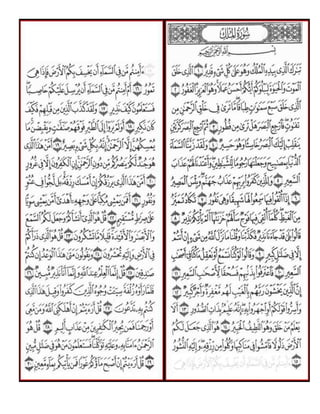 سُورَةُ المُلْكِ
بسم الله الرحمن الرحيم
تبرك الذي بيده الملك وهو على كل شيء قدير ١ الذي خلق
الموت والحيوة ليبلوكم أيكم أحسن عملا وهو العزيز الغفور ٢
الذي خلق سبع سموت طباقا ما ترى في خلق الرحمن من
تفوت فارجع البصر هل ترى من فطور ٣ ثم ارجع البصر كرتين
ينقلب إليك البصر خاسئا وهو حسير ٤ ولقد زينا السماء
الدنيا بمصبيح وجعلنها رجوما للشيطين وأعتدنا لهم عذاب
السعير ٥ وللذين كفروا بربهم عذاب جهنم وبئس المصير
٦ إذا ألقوا فيها سمعوا لها شهيقا وهي تفور ٧ تكاد تميز
من الغيظ كلما ألقي فيها فوج سألهم خزنتها ألم يأتكم نذير ٨
قالوا بلى قد جاءنا نذير فكذبنا وقلنا ما نزل الله من شيء إن أنتم
إلا في ضلل كبير ٩ وقالوا لو كنا نسمع أو نعقل ما كنا في أصحب
السعير ١٠ فاعترفوا بذنبهم فسحقا لأصحب السعير ١١
إن الذين يخشون ربهم بالغيب لهم مغفرة وأجر كبير ١٢
وأسروا قولكم أو اجهروا به إنه عليم بذات الصدور ١٣ ألا
يعلم من خلق وهو اللطيف الخبير ١٤ هو الذي جعل لكم
الأرض ذلولا فامشوا في مناكبها وكلوا من رزقه وإليه النشور
١٥ ءأمنتم من في السماء أن يخسف بكم الأرض فإذا هي
ءأمنتم من في السماء أن يخسف بكم الأرض فإذا هي
تمور ١٦ أم أمنتم من في السماء أن يرسل عليكم حاصبا
فستعلمون كيف نذير ١٧ ولقد كذب الذين من قبلهم فكيف
كان نكير ١٨ أولم يروا إلى الطير فوقهم صفت ويقبضن ما
يمسكهن إلا الرحمن إنه بكل شيء بصير ١٩ أمن هذا الذي
هو جند لكم ينصركم من دون الرحمن إن الكفرون إلا في غرور
٢٠ أمن هذا الذي يرزقكم إن أمسك رزقه بل لجوا في عتو
ونفور ٢١ أفمن يمشي مكبا على وجهه أهدى أمن يمشي سويا
على صرط مستقيم ٢٢ قل هو الذي أنشأكم وجعل لكم السمع
والأبصر والأفئدة قليلا ما تشكرون ٢٣ قل هو الذي ذرأكم
في الأرض وإليه تحشرون ٢٤ ويقولون متى هذا الوعد إن كنتم
صدقين ٢٥ قل إنما العلم عند الله وإنما أنا نذير مبين ٢٦
فلما رأوه زلفة سيئت وجوه الذين كفروا وقيل هذا الذي
كنتم به تدعون ٢٧ قل أرءيتم إن أهلكني الله ومن معي
أو رحمنا فمن يجير الكفرين من عذاب أليم ٢٨ قل هو
الرحمن ءامنا به وعليه توكلنا فستعلمون من هو في ضلل مبين
٢٩ قل أرءيتم إن أصبح ماؤكم غورا فمن يأتيكم بماء معين ٣٠